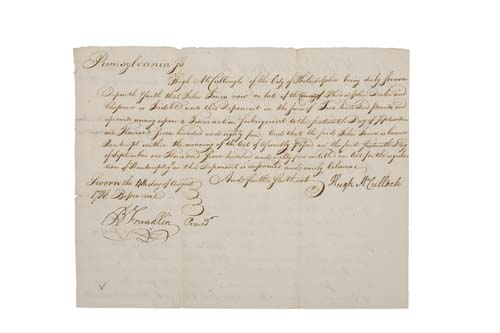 Pennsylvania ss
Hugh McCullough of the City of Philadelphia being duly sworn
Deposeth & saith that John Jones now or late of the Philadelphia Dealer and
Chapman is Indebted unto this Deponent in the sum of Two hundred pounds and
upwards arising upon a Transaction Subsequent to the fourteenth Day of September
one Thousand Seven hundred and eighty five. And that the said John Jones is become
Bankrupt within the meaning of the Act of Assembly passed on the said fourteenth Day
of September one Thousand Seven hundred and eighty five entitled an Act for the regulation
of Bankruptcy as this Deponent is informed and verily believes.
And further saith not.
Hugh McCullock
Sworn the 4th day of August
1786 Before me
B Franklin Presidt